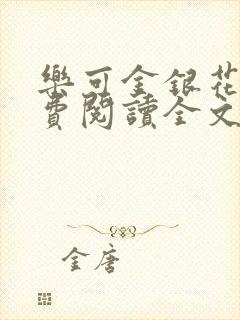 樂可金銀花
費閱讀全文
金唐